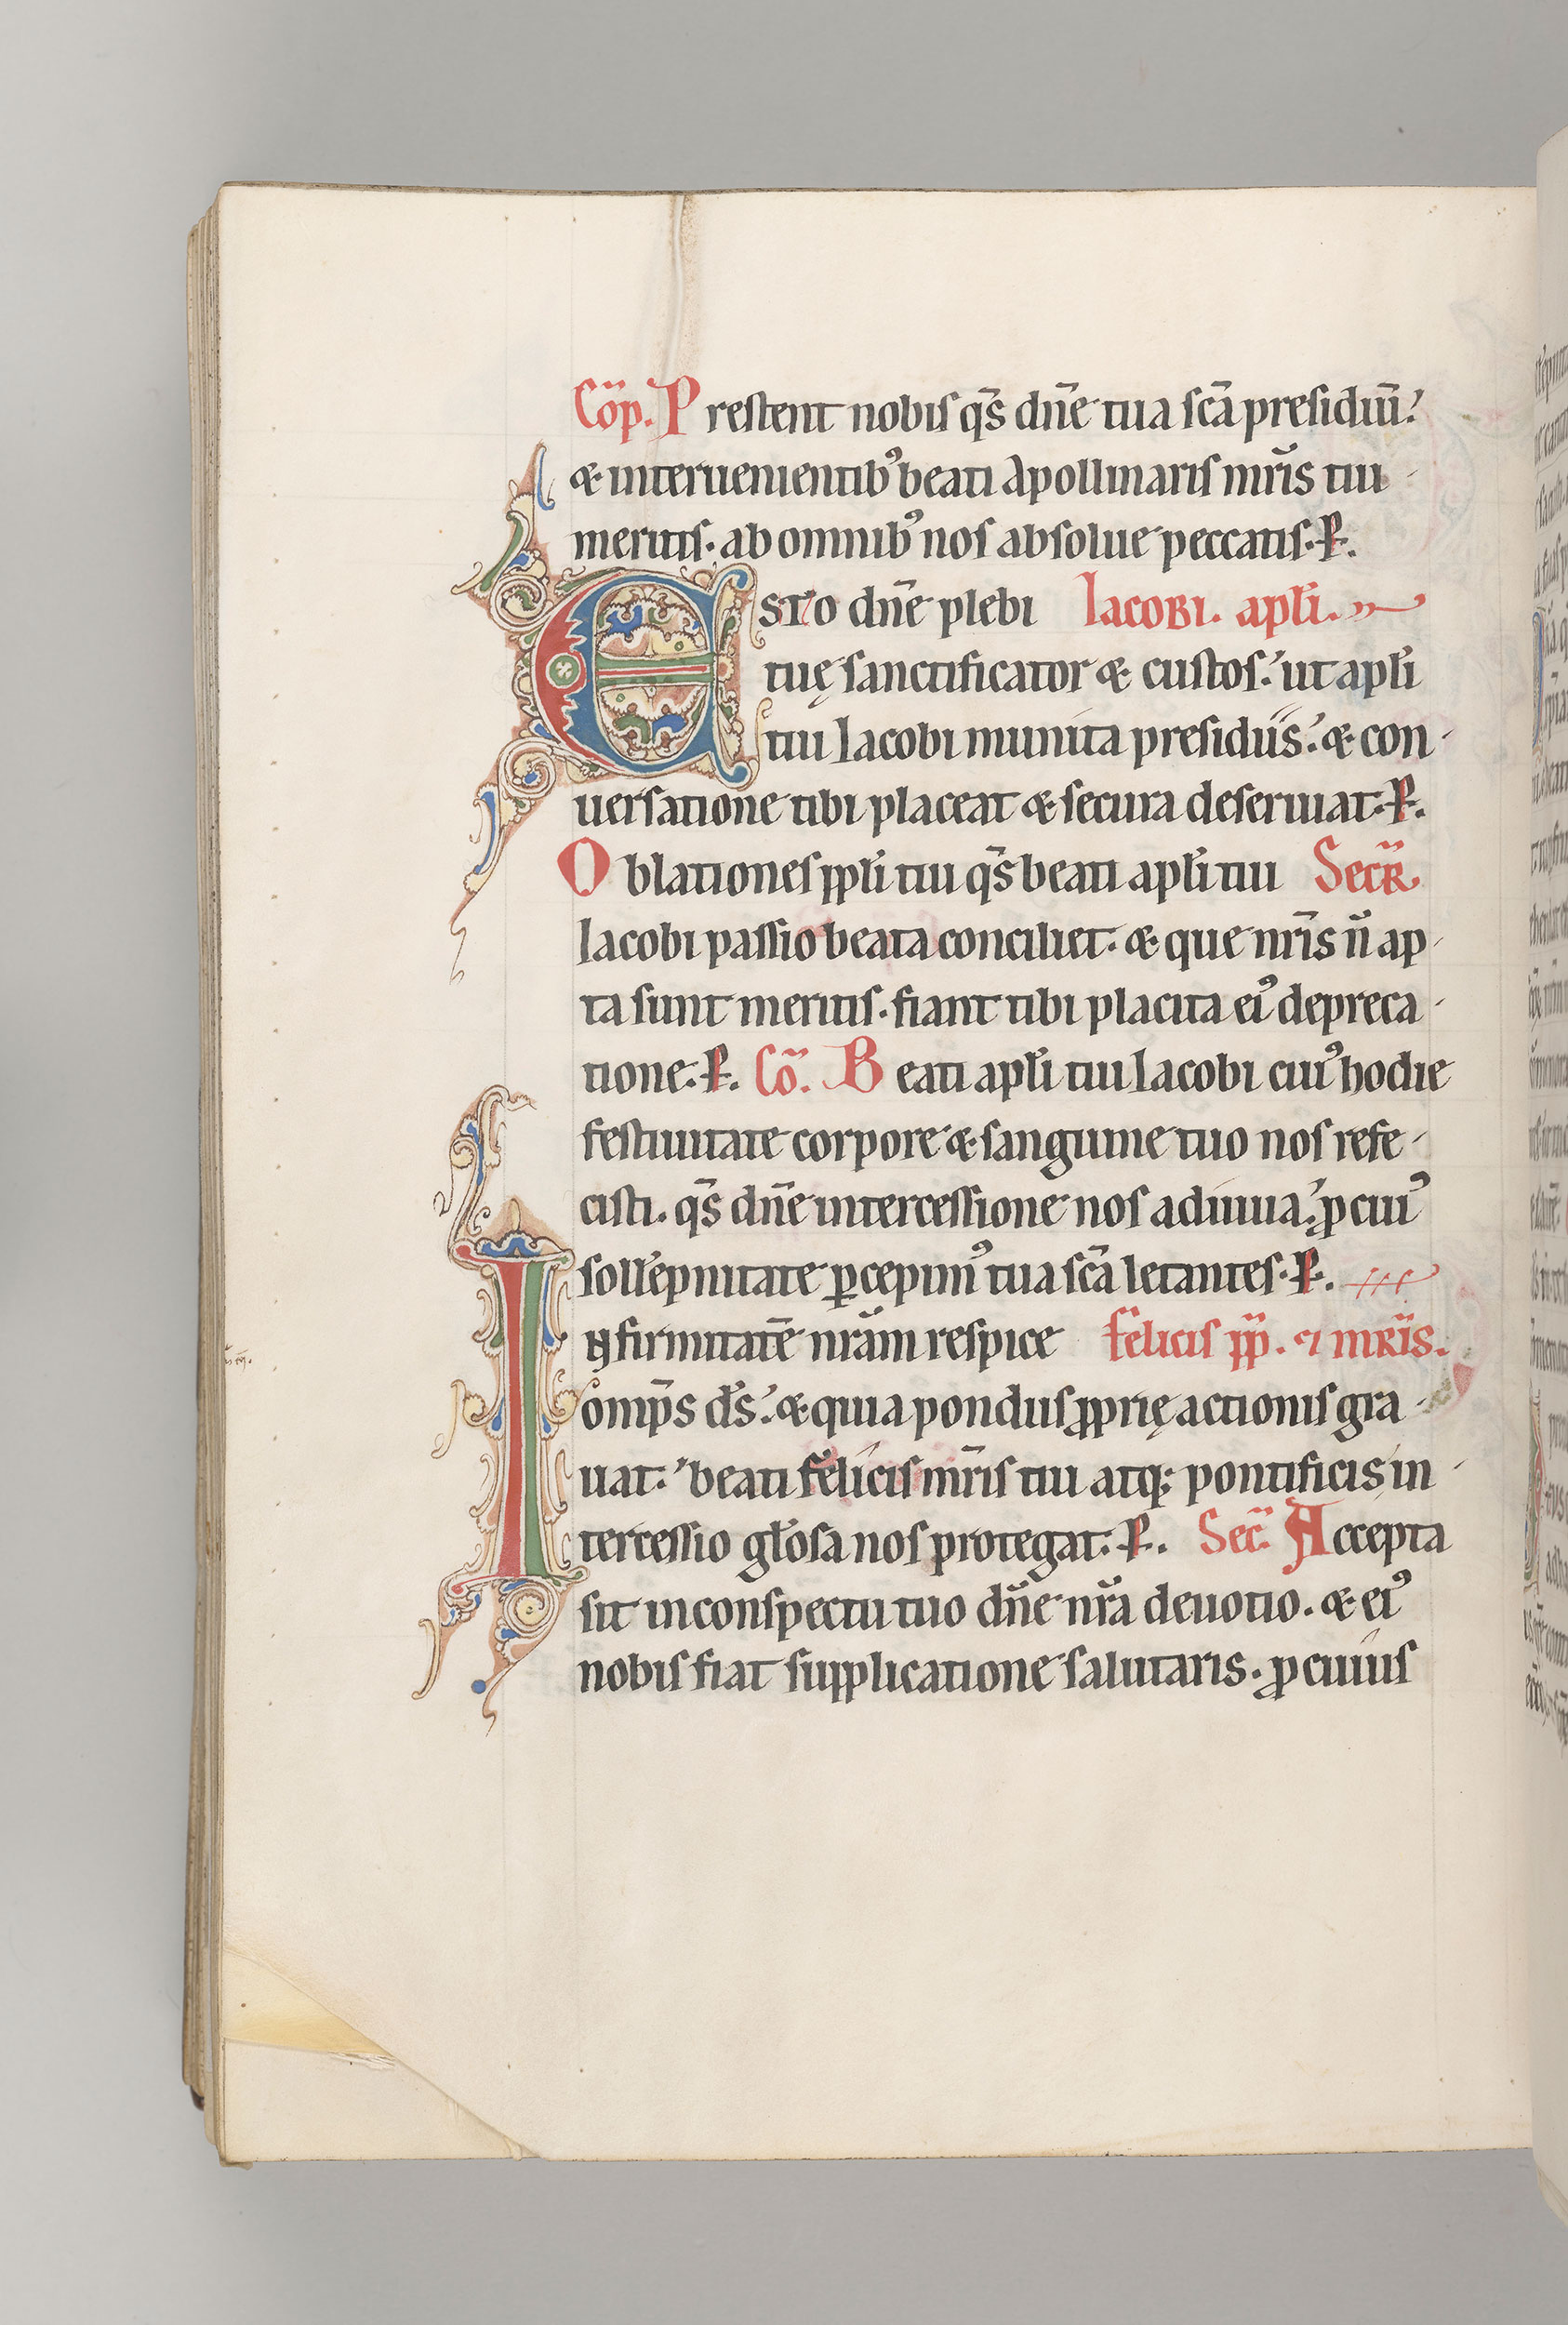 Cōp. Prestent nobis qs̄ dn̄e tua scā presidiū:
& interuenientib⁹ beati Apollinaris mr̄is tui
meritis. ab omnib⁹ nos absolue peccatis. P.
ESTO dn̄e plebi Iacobi. apl̄i.
tuę sanctificator & custos: ut apl̄i
tui Iacobi munita presidiis: & con
uersatione tibi placeat & secura deseruiat. P.
Oblationes ppl̄i tui qs̄ beati apl̄i tui Secr̄
Iacobi passio beata conciliet. & que nr̄is n̄ ap
ta sunt meritis. fiant tibi placita ei⁹ depreca
tione. P. Cō. Beati apl̄i tui Iacobi cui⁹ hodie
festiuitate corpore & sanguine tuo nos refe
cisti. qs̄ dn̄e intercessione nos adiuua: ꝓ cui⁹
sollēpnitate ꝑcepim⁹ tua scā letantes. P.
INfirmitatē nr̄am respice felicis pp̄. ⁊ mr̄is.
omp̄s ds̄: & quia pondus ꝓprię actionis gra
uat: beati felicis mr̄is tui atq; pontificis in
tercessio gl̄osa nos protegat. P. Sec̄. Accepta
sit in conspectu tuo dn̄e nr̄a deuotio. & ei⁹
nobis fiat supplicatione salutaris. ꝓ cuius